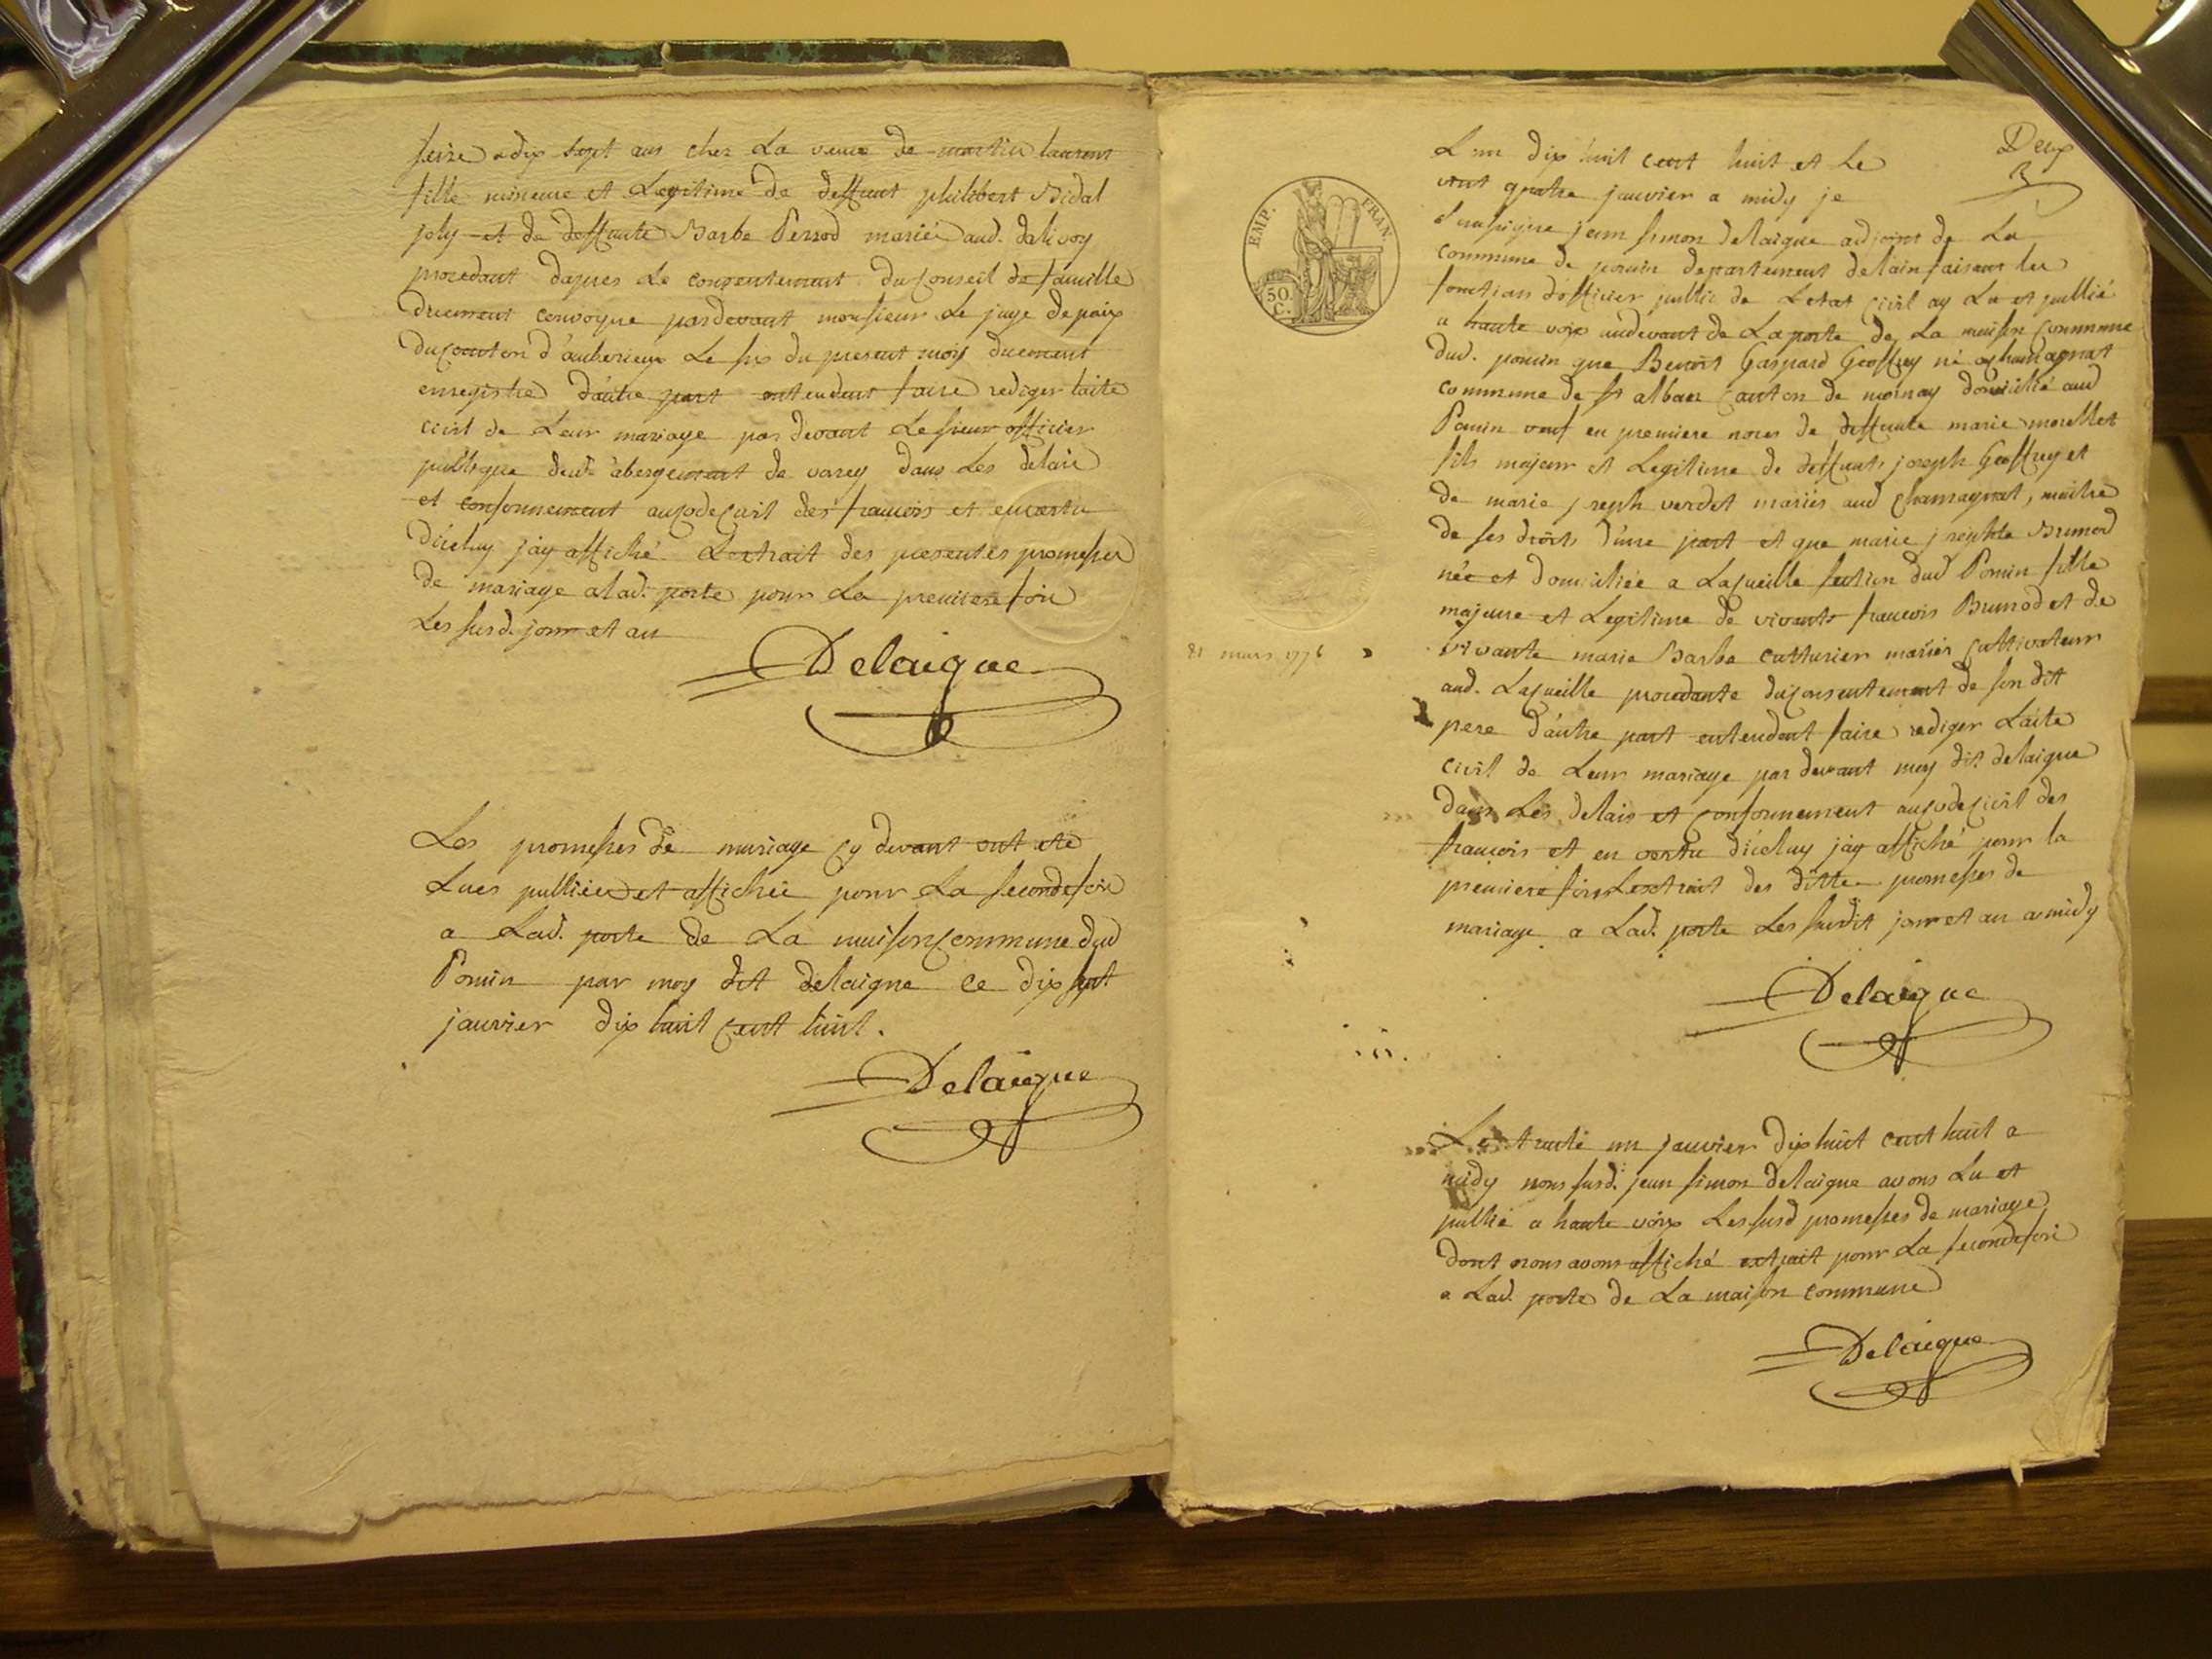 seize a dix sept ans chez La veuve de martin laurent
fille mineure et Legitime de deffunt philibert Bidal
joly et de deffunte Barbe Perrod mariés aud. dalivoy
procedant dapres Le consentement du Conseil de famille
duement convoque pardevant monsieur Le juge de paix
du Canton d'amberieux Le six du present mois duement
enregistre d'autre part entendent faire rediger lacte
civil de Leur mariage par devant Le sieur officier
publique dud. abergement de varey dans Les delais
et conformement au Code Civil des francois et en vertu
d'iceluy j'ay affiché Lextrait des presentes promesses
de mariage a lad. porte pour La premiere fois
Les susd. jour et an
Delaigue
Les promesses de mariage cy devant ont été
Lues publiées et affichée pour La seconde fois
a Lad. porte de La maison Commune dud
Poncin par moy dit delaigue ce dix sept
janvier dix huit Cent huit.
Delaigue
Deux
EMP. FRAN.
50 C.
L'an dix huit cent huit et le
vint quatre janvier a midy je
soussigne jean simon delaigue adjoint de La
commune de poncin departement de lain faisant les
fonctions d'officier public de Letat civil ay Lu et publié
a haute voix audevant de La porte de La maison Commune
dud. poncin que Benoit Gaspard Geoffrey né a chamagnat
commune de st alban Canton de domicilié aud
Poncin veuf en premiere noces de deffunte marie morellet
fils majeur et Legitime de deffunts joseph Geoffrey et
de marie joseph verdet mariés aud Chamagnat, maitre
de ses droits d'une part et que marie josephte Brunod
née et domiciliée a Lacueille section dud Poncin fille
majeure et Legitime de vivants francois Brunod et de
21 mars 1776
vivante marie Barbe mariés Cultivateurs
aud. Lacueille procedante du Consentement de son dit
pere d'autre part entendent faire rediger Lacte
civil de Leur mariage par devant moy dit delaigue
dans Les delais et Conformement au Code Civil des
francois et en vertu d'iceluy j'ay affiché pour la
premiere fois Lextrait des dittes promesses de
mariage a Lad. porte Les susdit jour et an a midy
Delaigue
Le trante un janvier dix huit cent huit a
midy nous susd. jean simon delaigue avons Lu et
publié a haute voix Les susd promesses de mariage
dont nous avons affiché extrait pour La seconde fois
a Lad. porte de La maison commune
Delaigue